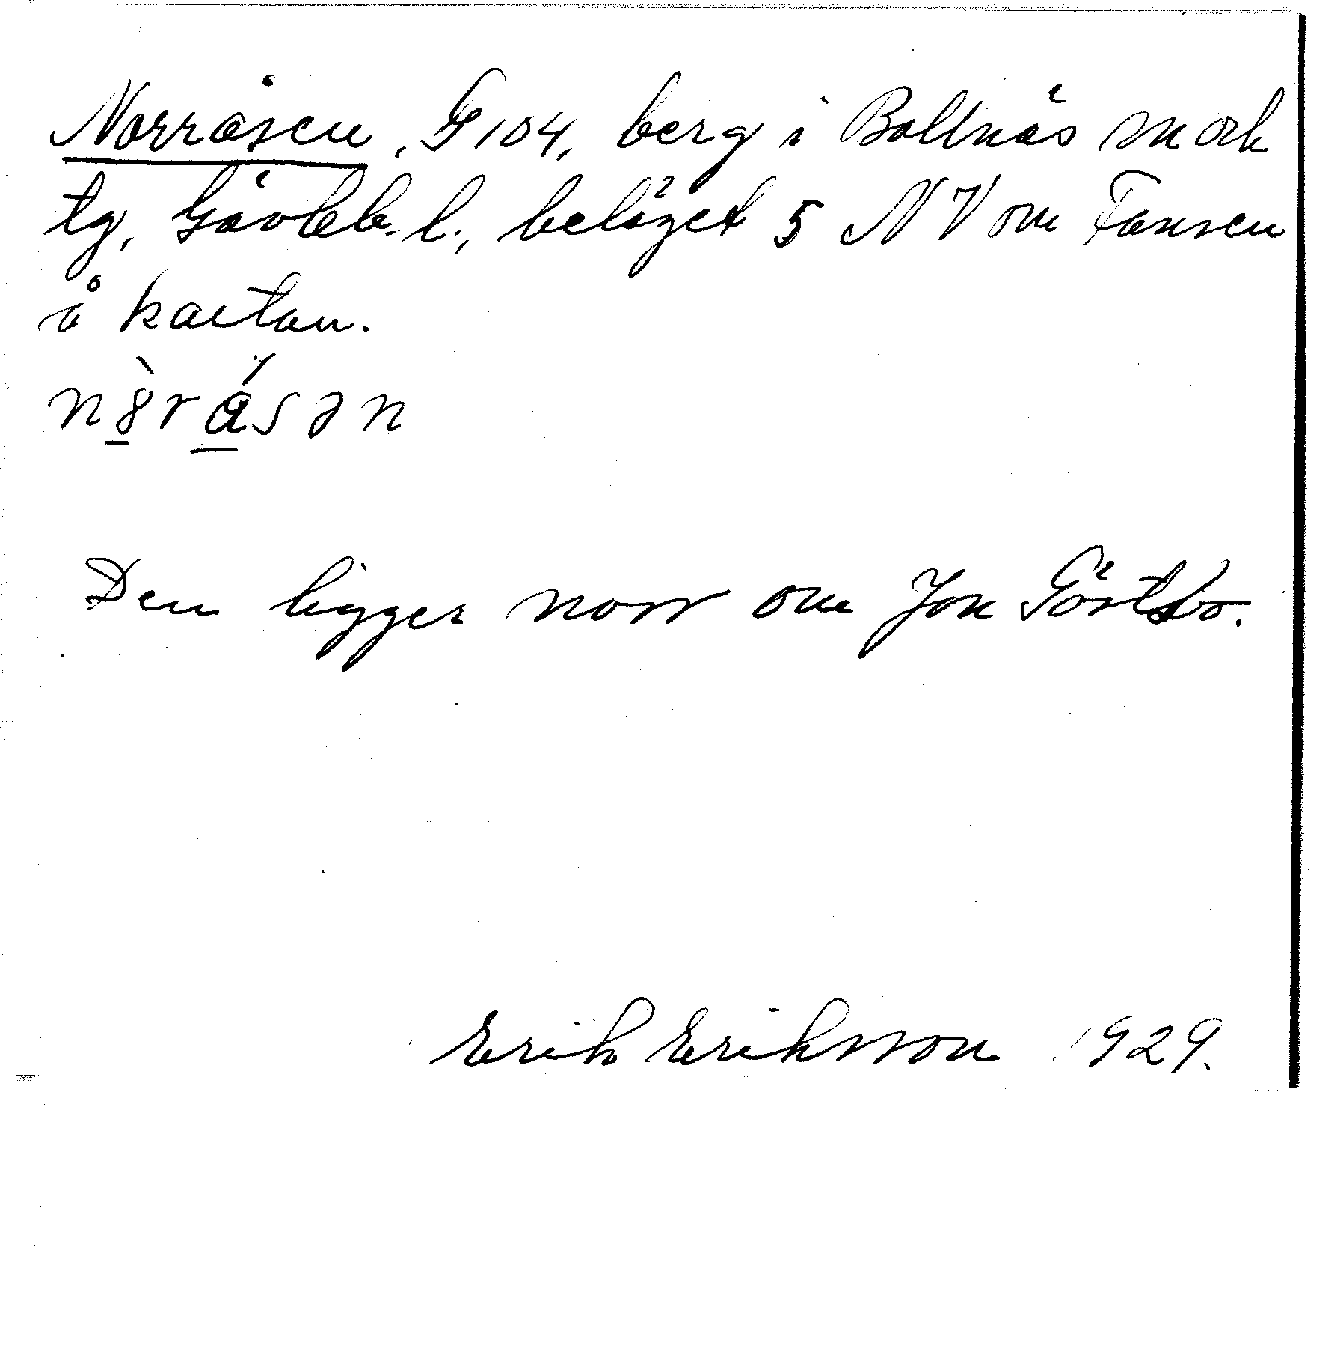 Norråsen, G 104, berg i Bollnäs mark
tg, Gävleb. l., beläget 5 NV om Tansen
å kartan.
n8̀rásən
Den ligger norr om Jon
Erik Eriksson 1929.